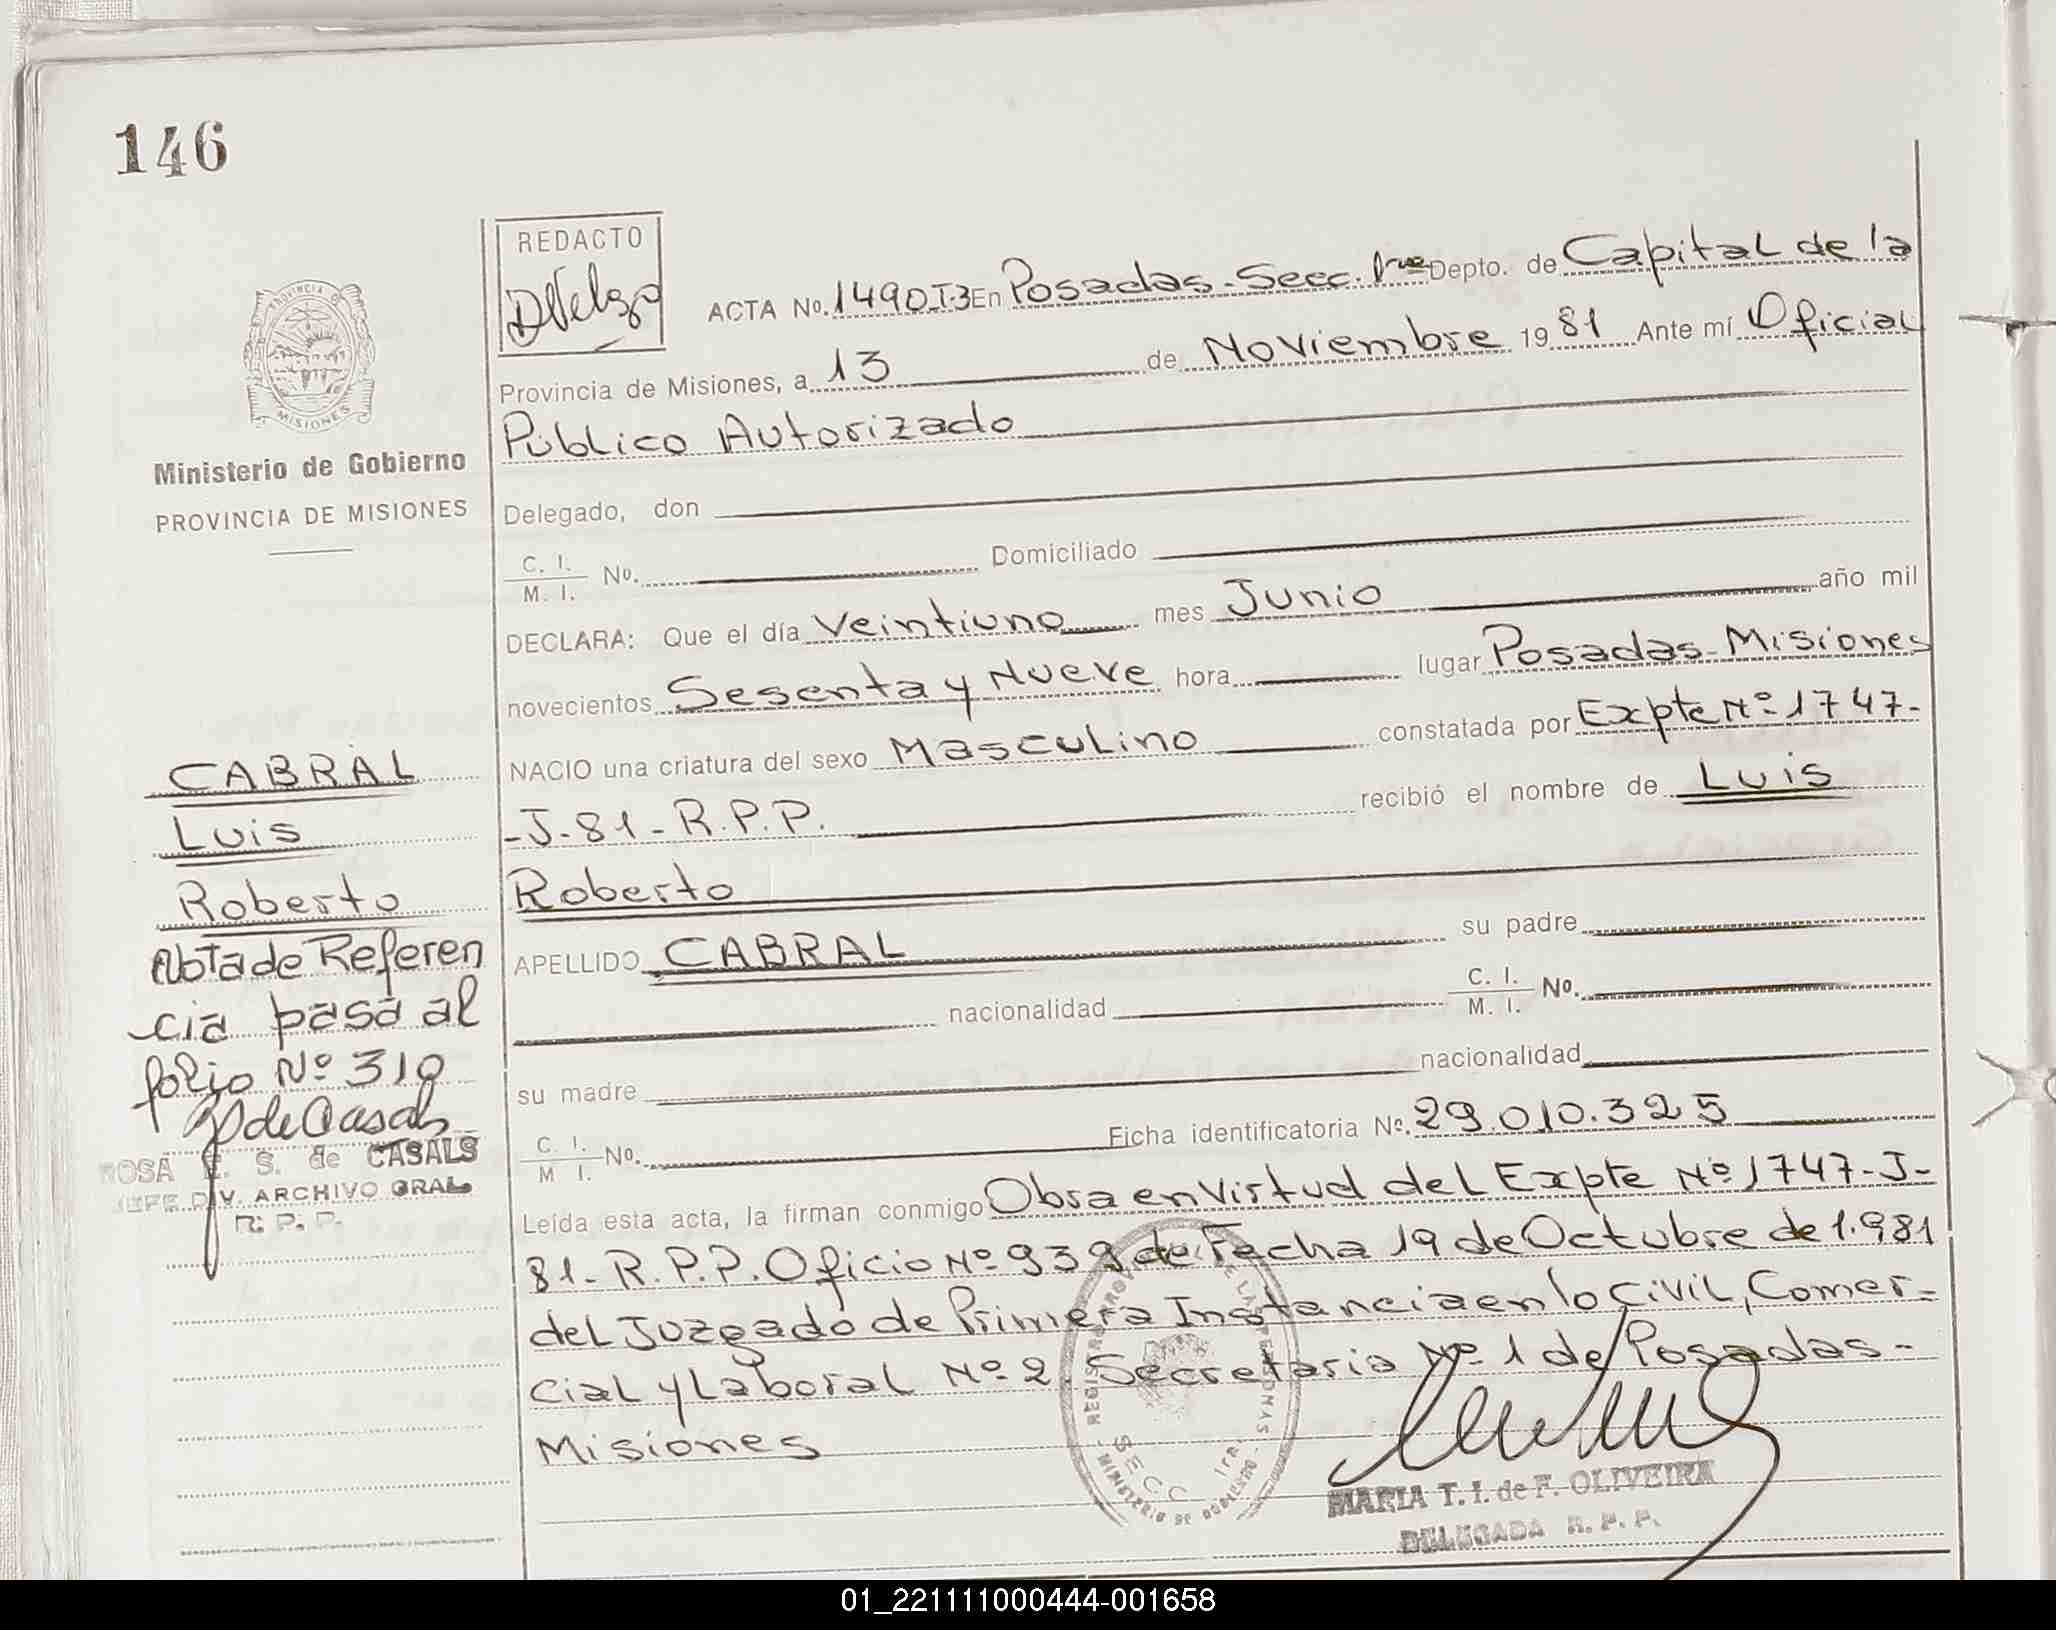 146
REDACTO
ACTA No. 1490 T.3 En Posadas - Secc. 1ra Depto. de Capital de la
Provincia de Misiones, a 13 de Noviembre 1981 Ante mí Oficial
Público Autorizado
PROVINCIA DE MISIONES
Ministerio de Gobierno
PROVINCIA DE MISIONES
Delegado, don
C. I. / M. I. No. Domiciliado
DECLARA: Que el día Veintiuno mes Junio año mil
novecientos Sesenta y Nueve hora lugar Posadas - Misiones
NACIO una criatura del sexo Masculino constatada por Expte Nº 1747-
-J-81-R.P.P. recibió el nombre de Luis
Roberto
APELLIDO CABRAL su padre
nacionalidad C. I. / M. I. No.
su madre nacionalidad
C. I. / M I. No. Ficha identificatoria No. 29.010.325
Leída esta acta, la firman conmigo Obra en Virtud del Expte Nº 1747-J-
81-R.P.P. Oficio Nº 939 de Fecha 19 de Octubre de 1.981
del Juzgado de Primera Instancia en lo Civil, Comer-
cial y Laboral Nº 2. Secretaria Nº 1 de Posadas-
Misiones
CABRAL
Luis
Roberto
Nota de Referen
cia pasa al
folio Nº 310
ROSA E. S. de CASALS
JEFE DIV. ARCHIVO GRAL
R. P. P.
REGISTRO PROVINCIAL DE LAS PERSONAS
SECC 1RA
MINISTERIO DE GOBIERNO
MARIA T. I. de F. OLIVEIRA
DELEGADA R. P. P.
01_221111000444-001658